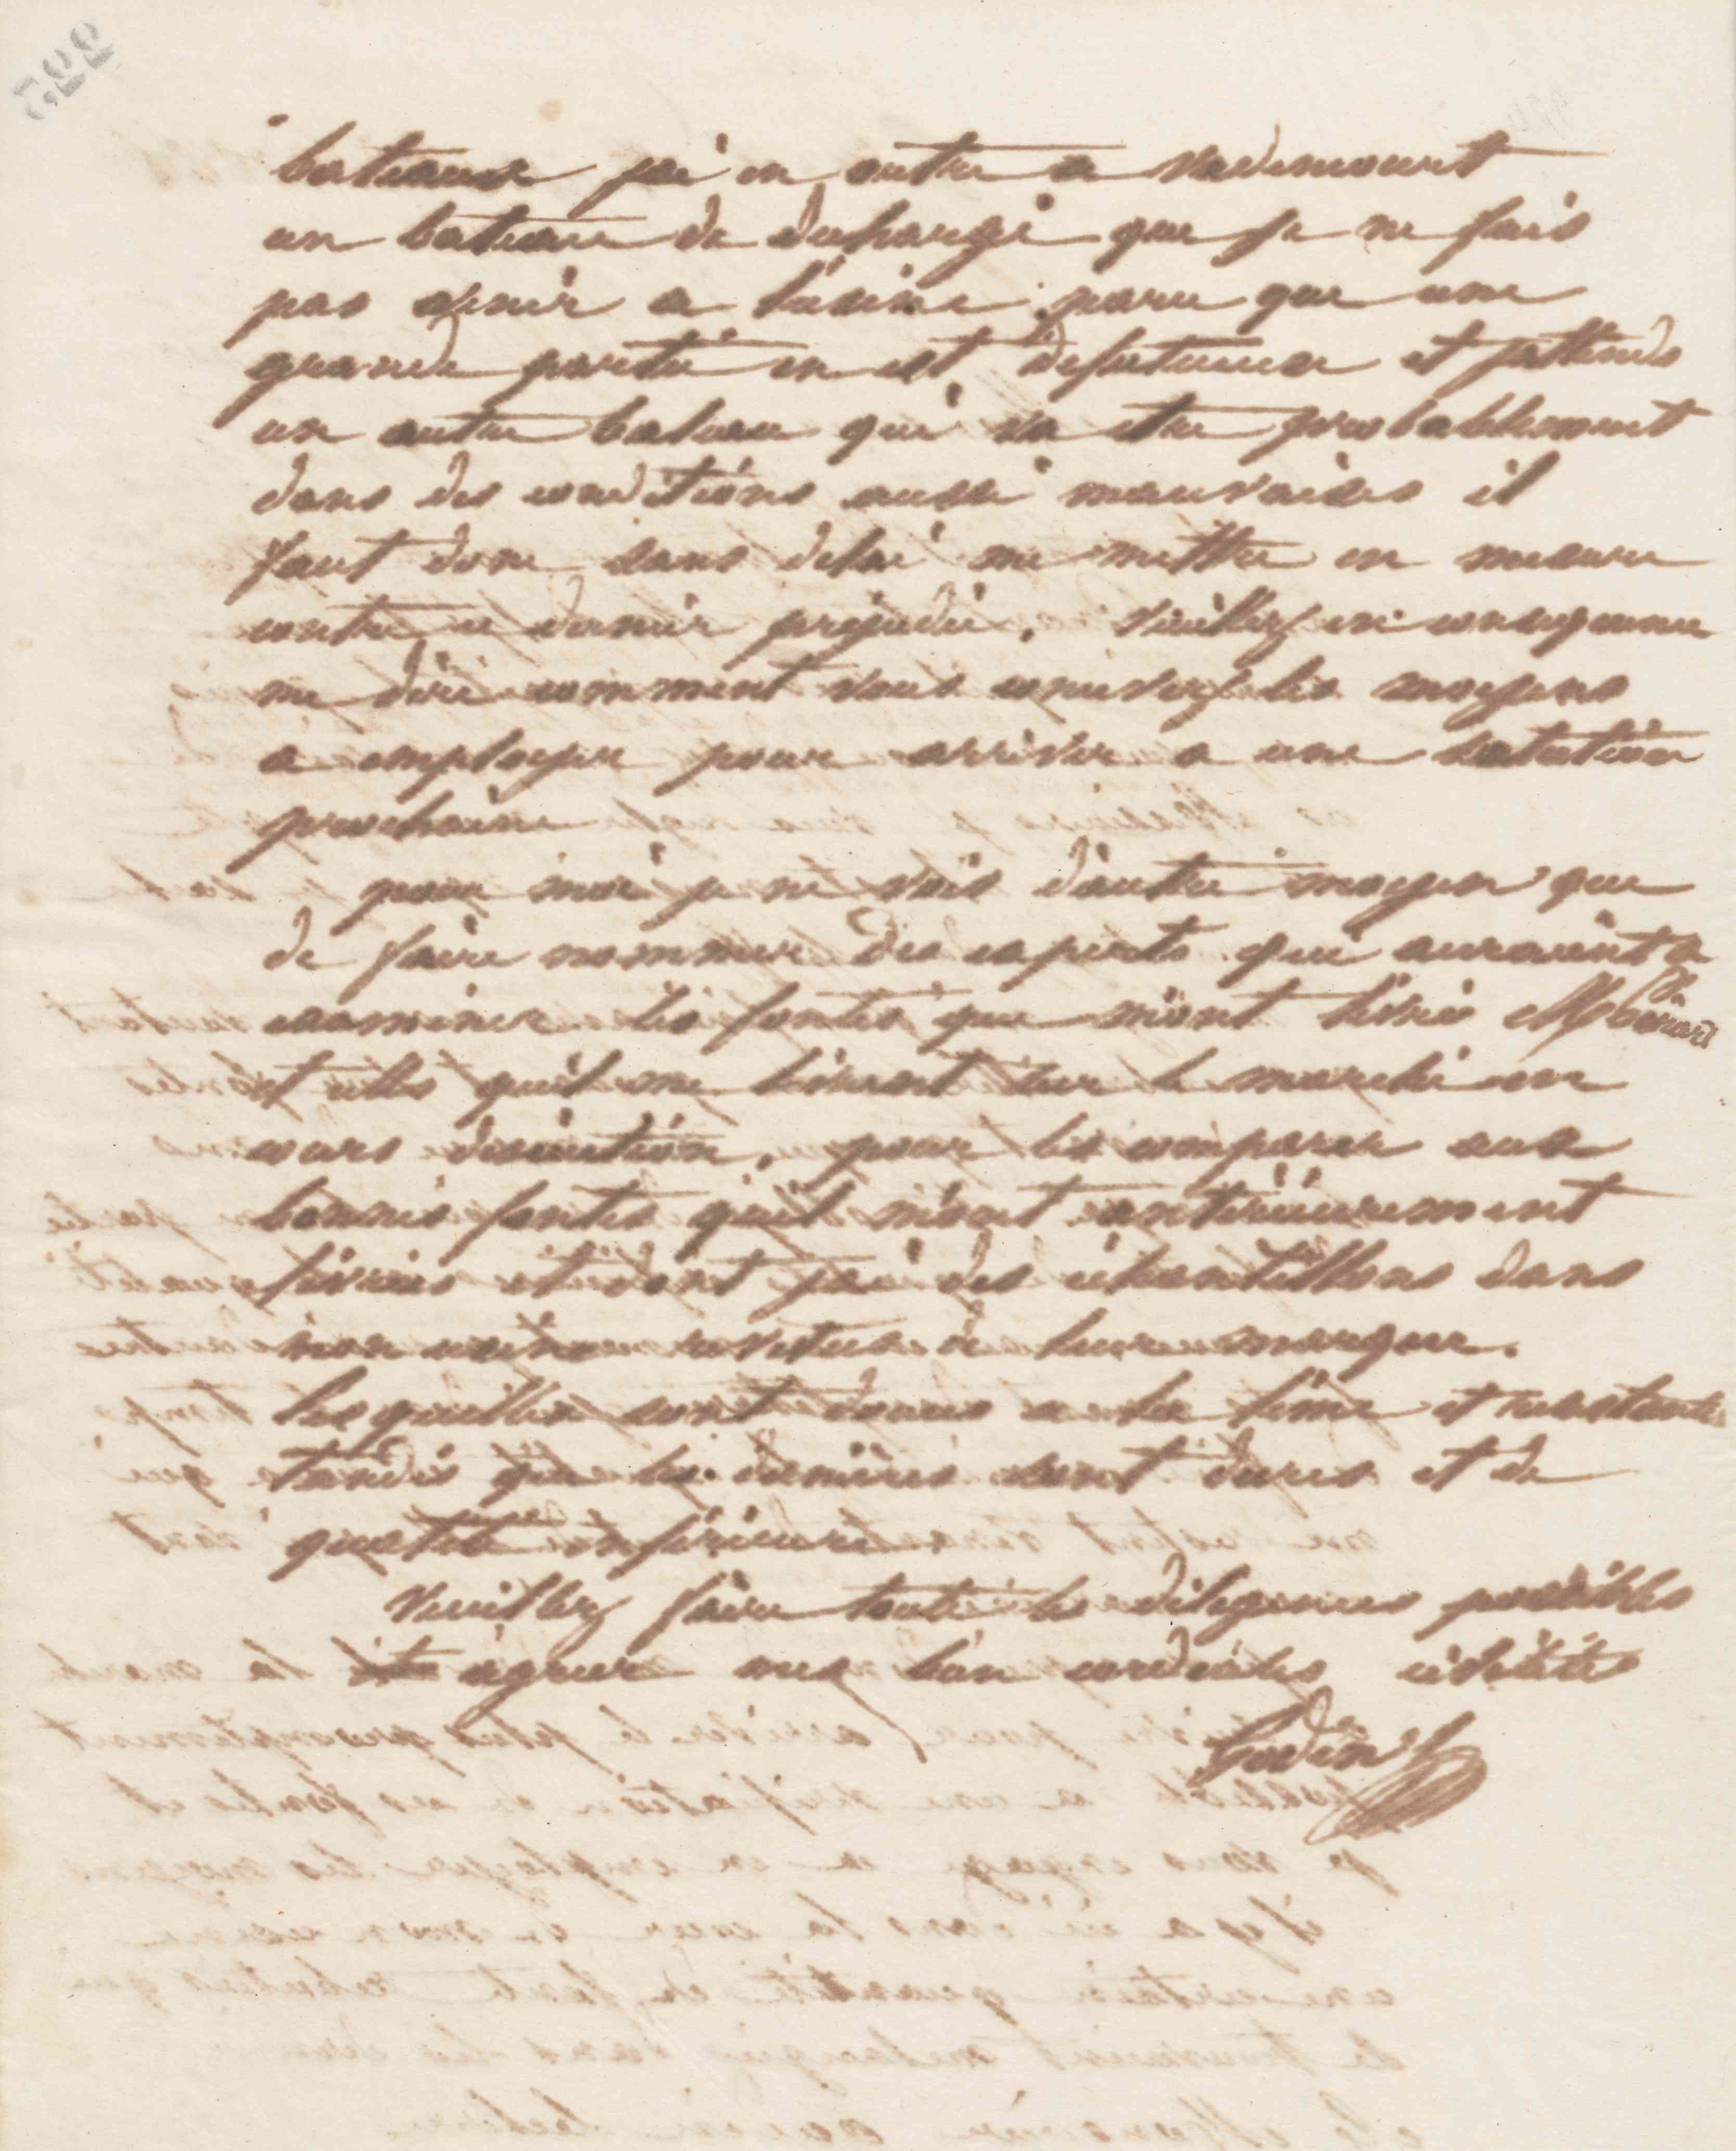 bateaux j'ai en outre a vadencourt
un bateau de decharge que je ne fais
pas venir a lusine parce que une
grande partie en est defectueuse et jattends
un autre bateau qui va etre probablement
dans des conditions aussi mauvaises il
faut donc sans delai me mettre en mesure
contre ce dernier prejudice. Veuillez en consequence
me dire comment vous concevez les moyens
a employer pour arriver a une solution
prochaine
pour moi je ne vois d'autre moyen que
de faire nommer des experts qui auraient a
examiner les fontes que m'ont livrés MM
et celles qu'il me livrent sur le marché en
cours d'exécution, pour les comparer aux
bonnes fontes qu'il m'ont antérieurement
livrées et dont j'ai des échantillons dans
mon usine revetus de leur marque.
lesquelles sont douces a la lime et resistantes
tandis que les dernières sont dures et de
qualité inférieure
Veuillez faire toutes les diligences possibles
et agréer mes bien cordiales civilités
Godin